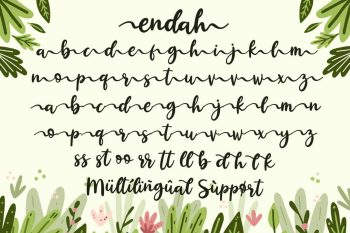 endah
a b c d e f g h i j k l m
n o p q r s t u v w x z
a b c d e f g h j k l m n
o p q r s t u v w x y z
ss st oo rr tt ll b d h l k
Mültilingûal Sùppørt